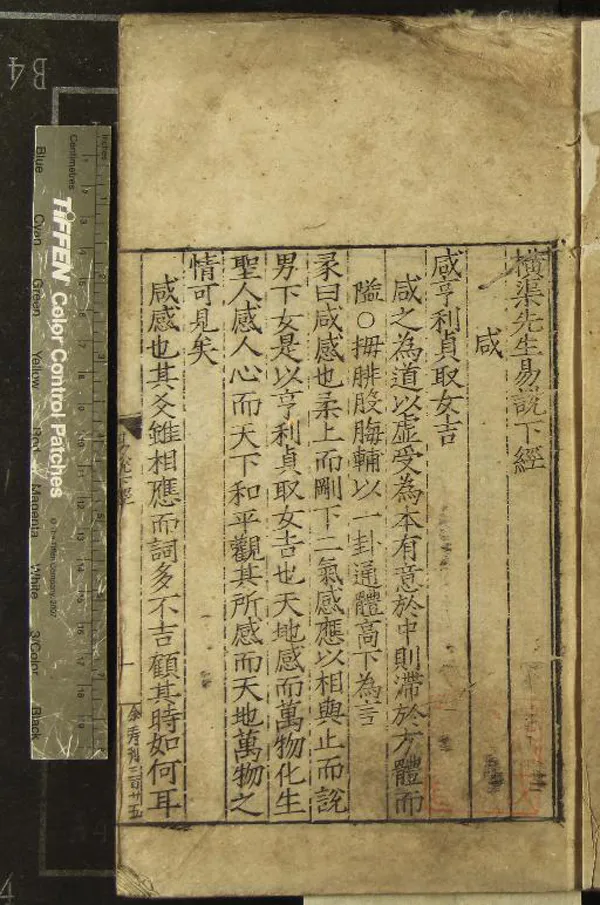 橫渠先生易說下經
咸
咸亨利貞取女吉
咸之為道以虛受為本有意於中則滯於方體而
隘〇拇腓股脢輔以一卦通體高下為言
彖曰咸感也柔上而剛下二氣感應以相與止而說
男下女是以亨利貞取女吉也天地感而萬物化生
聖人感人心而天下和平觀其所感而天地萬物之
情可見矣
咸感也其爻雖相應而詞多不吉顧其時如何耳
易說下經
一
余壽刊三百廿五
B4
Inches
Centimetres
TIFFEN Color Control Patches
© The Tiffen Company, 2007
Blue
Cyan
Green
Yellow
Red
Magenta
White
3/Color
Black